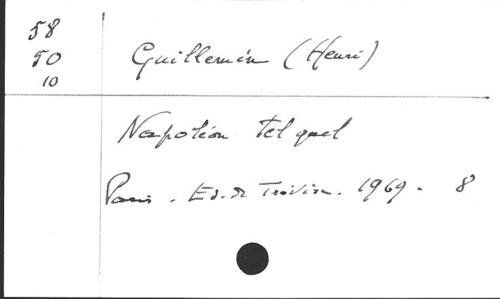 58
50
10
Guillemin (Henri)
Napoléon tel quel
Paris. Ed. de Trévise. 1969. 8